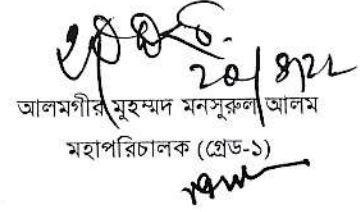 আলমগীর মুহম্মদ মনসুরুল আলম
মহাপরিচালক (গ্রেড-১)